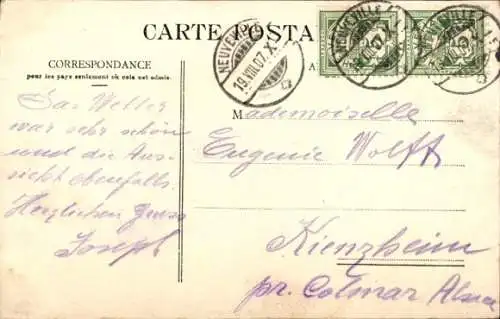 CARTE POSTA
CORRESPONDANCE
pour les pays seulement où cela est admis.
NEUVEVILLE
19.VIII.07.X
Das Wetter
war sehr schön
und die Aus-
sicht ebenfalls.
Herzlichen Gruss
Joseph
Mademoiselle
Eugenie Wolff
Kienzheim
pr. Colmar Alsace